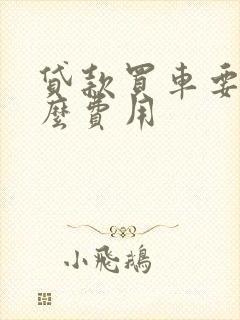 貸款買車要
麼費用
小飛鵝